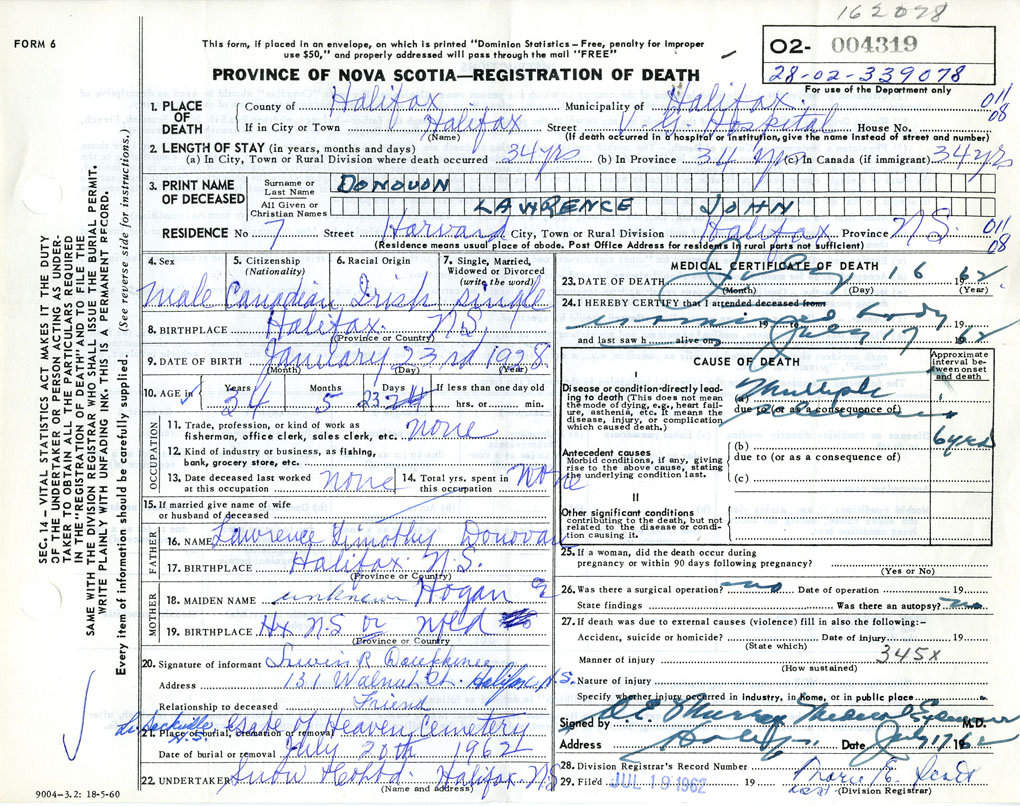 162078
FORM 6
This form, if placed in an envelope, on which is printed "Dominion Statistics – Free, penalty for improper
use $50," and properly addressed will pass through the mail "FREE"
O2- 004319
28-02-339078
For use of the Department only
PROVINCE OF NOVA SCOTIA—REGISTRATION OF DEATH
1. PLACE OF DEATH
County of Halifax Municipality of Halifax. 011
If in City or Town Halifax Street V G Hospital House No. 08
(Name) (If death occurred in a hospital or institution, give the name instead of street and number)
2. LENGTH OF STAY (in years, months and days)
(a) In City, Town or Rural Division where death occurred 34 yrs (b) In Province 34 yrs (c) In Canada (if immigrant) 34 yrs
3. PRINT NAME OF DECEASED
Surname or Last Name DONOVON
All Given or Christian Names LAWRENCE JOHN
RESIDENCE No 7 Street Harvard City, Town or Rural Division Halifax Province N.S. 011
08
(Residence means usual place of abode. Post Office Address for residents in rural parts not sufficient)
4. Sex
5. Citizenship (Nationality)
6. Racial Origin
7. Single, Married, Widowed or Divorced (write the word)
Male Canadian Irish Single
8. BIRTHPLACE Halifax. N.S.
(Province or Country)
9. DATE OF BIRTH January 23rd 1928
(Month) (Day) (Year)
10. AGE in
Years Months Days If less than one day old
34 5 23 hrs. or min.
OCCUPATION
11. Trade, profession, or kind of work as
fisherman, office clerk, sales clerk, etc. none
12. Kind of industry or business, as fishing,
bank, grocery store, etc.
13. Date deceased last worked
at this occupation none
14. Total yrs. spent in
this occupation None
15. If married give name of wife
or husband of deceased
FATHER
16. NAME Lawrence Timothy Donovan
17. BIRTHPLACE Halifax N.S.
(Province or Country)
MOTHER
18. MAIDEN NAME unknown Hogan E
19. BIRTHPLACE Hx N S or Nfld
(Province or Country)
20. Signature of informant
Address 131 Walnut St. Halifax N.S.
Relationship to deceased Friend
Sackville N.S.
21. Place of burial, cremation or removal Gate of Heaven Cemetery
Date of burial or removal July 20th 1962
22. UNDERTAKER Snow Halifax NS
(Name and address)
9004–3.2: 18-5-60
MEDICAL CERTIFICATE OF DEATH
23. DATE OF DEATH July 16 62
(Month) (Day) (Year)
24. I HEREBY CERTIFY that I attended deceased from
examined body
19 to July 17 19
and last saw h alive on 19 62
CAUSE OF DEATH
Approximate interval between onset and death
I
Disease or condition directly leading to death (This does not mean the mode of dying, e.g., heart failure, asthenia, etc. It means the disease, injury, or complication which caused death.)
(a) Multiple Sclerosis
due to (or as a consequence of)
6 yrs
Antecedent causes
Morbid conditions, if any, giving rise to the above cause, stating the underlying condition last.
(b)
due to (or as a consequence of)
(c)
II
Other significant conditions
contributing to the death, but not related to the disease or condition causing it.
25. If a woman, did the death occur during
pregnancy or within 90 days following pregnancy?
(Yes or No)
26. Was there a surgical operation? no Date of operation 19
State findings Was there an autopsy? no
27. If death was due to external causes (violence) fill in also the following:-
Accident, suicide or homicide? Date of injury 19
(State which)
Manner of injury 345x
(How sustained)
Nature of injury
Specify whether injury occurred in Industry, in Home, or in public place
Signed by D.E. Murray Medical Examiner M.D.
Address Halifax Date July 17 1962
28. Division Registrar's Record Number
29. Filed JUL 19 1962
(Division Registrar)
SEC. 14 – VITAL STATISTICS ACT MAKES IT THE DUTY
OF THE UNDERTAKER OR PERSON ACTING AS UNDER-
TAKER TO OBTAIN ALL THE PARTICULARS REQUIRED
IN THE "REGISTRATION OF DEATH" AND TO FILE THE
SAME WITH THE DIVISION REGISTRAR WHO SHALL ISSUE THE BURIAL PERMIT.
WRITE PLAINLY WITH UNFADING INK. THIS IS A PERMANENT RECORD.
Every item of information should be carefully supplied. (See reverse side for instructions.)